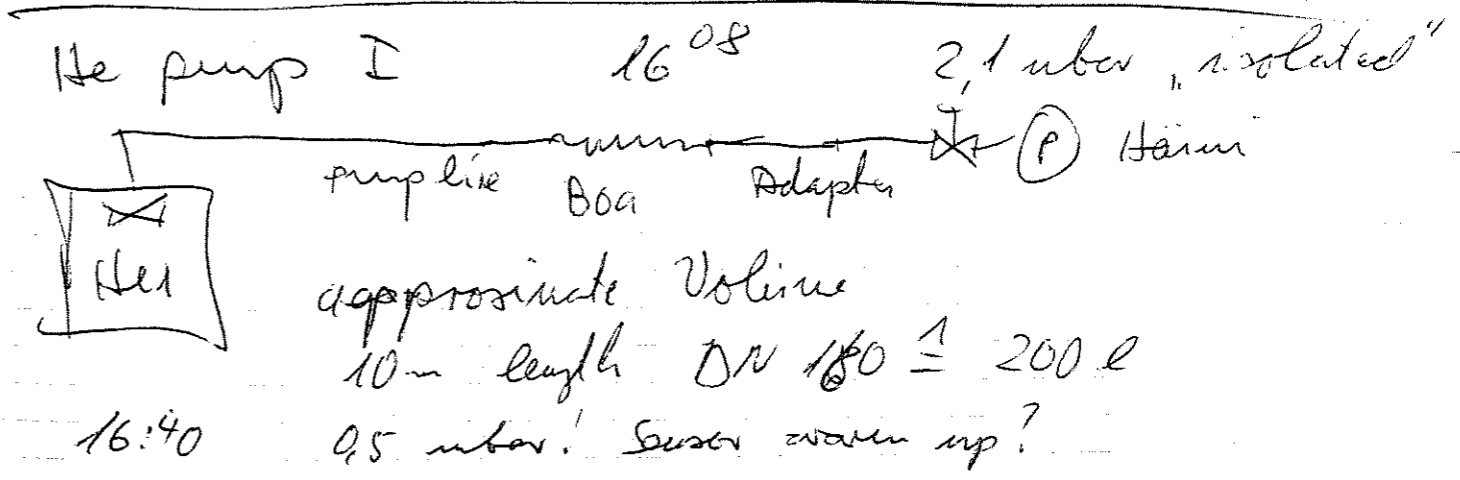 He pump I 16⁰⁸ 2,1 mbar „isolated"
P
pumpline Boa Adapter
aqpproximate Volume
10m length DN 160 ≙ 200 l
16:40 0,5 mbar! Sensor warm up?